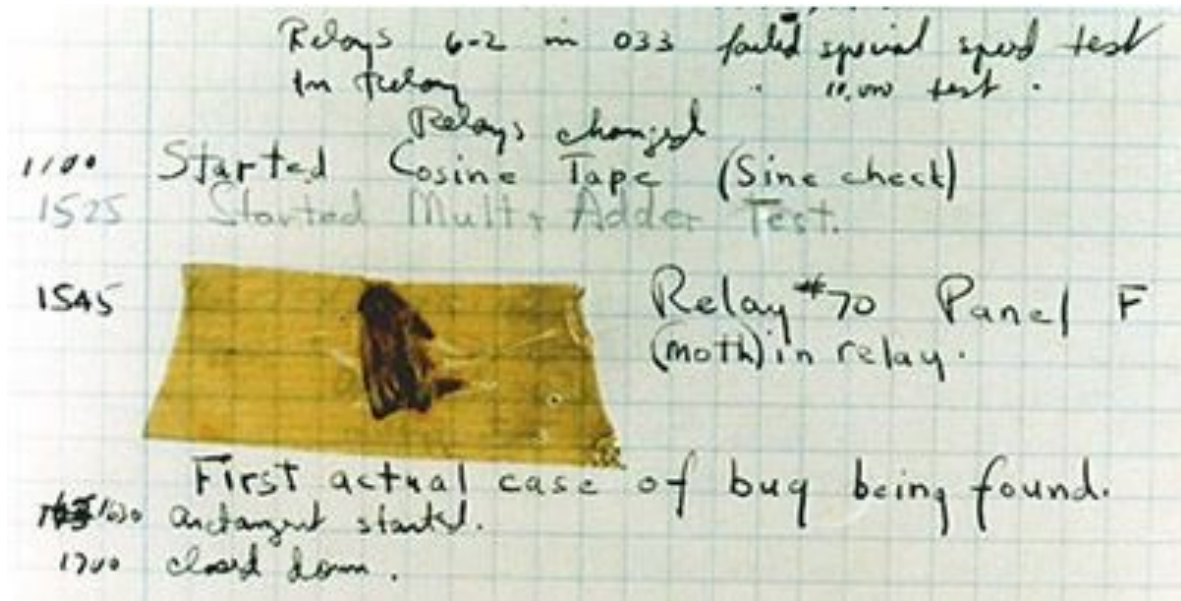 Relays 6-2 in 033 failed special speed test
In Relay " 11,000 test .
Relays changed
1100 Started Cosine Tape (Sine check)
1525 Started Mult + Adder Test.
1545 Relay #70 Panel F
(moth) in relay.
First actual case of bug being found.
1630 arctangent started.
1700 closed down .